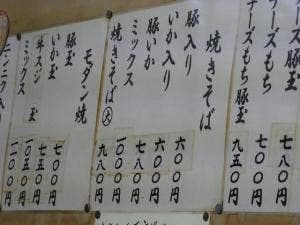 チーズもち
七〇〇円
チーズもち豚玉
九五〇円
焼きそば
豚入り
六〇〇円
いか入り
六〇〇円
豚いか
七八〇円
ミックス
一〇〇〇円
焼きそば大
九八〇円
モダン焼
豚玉
七〇〇円
いか玉
七五〇円
牛スジ玉
一〇五〇円
ミックス
一一〇〇円
ニンニク入り